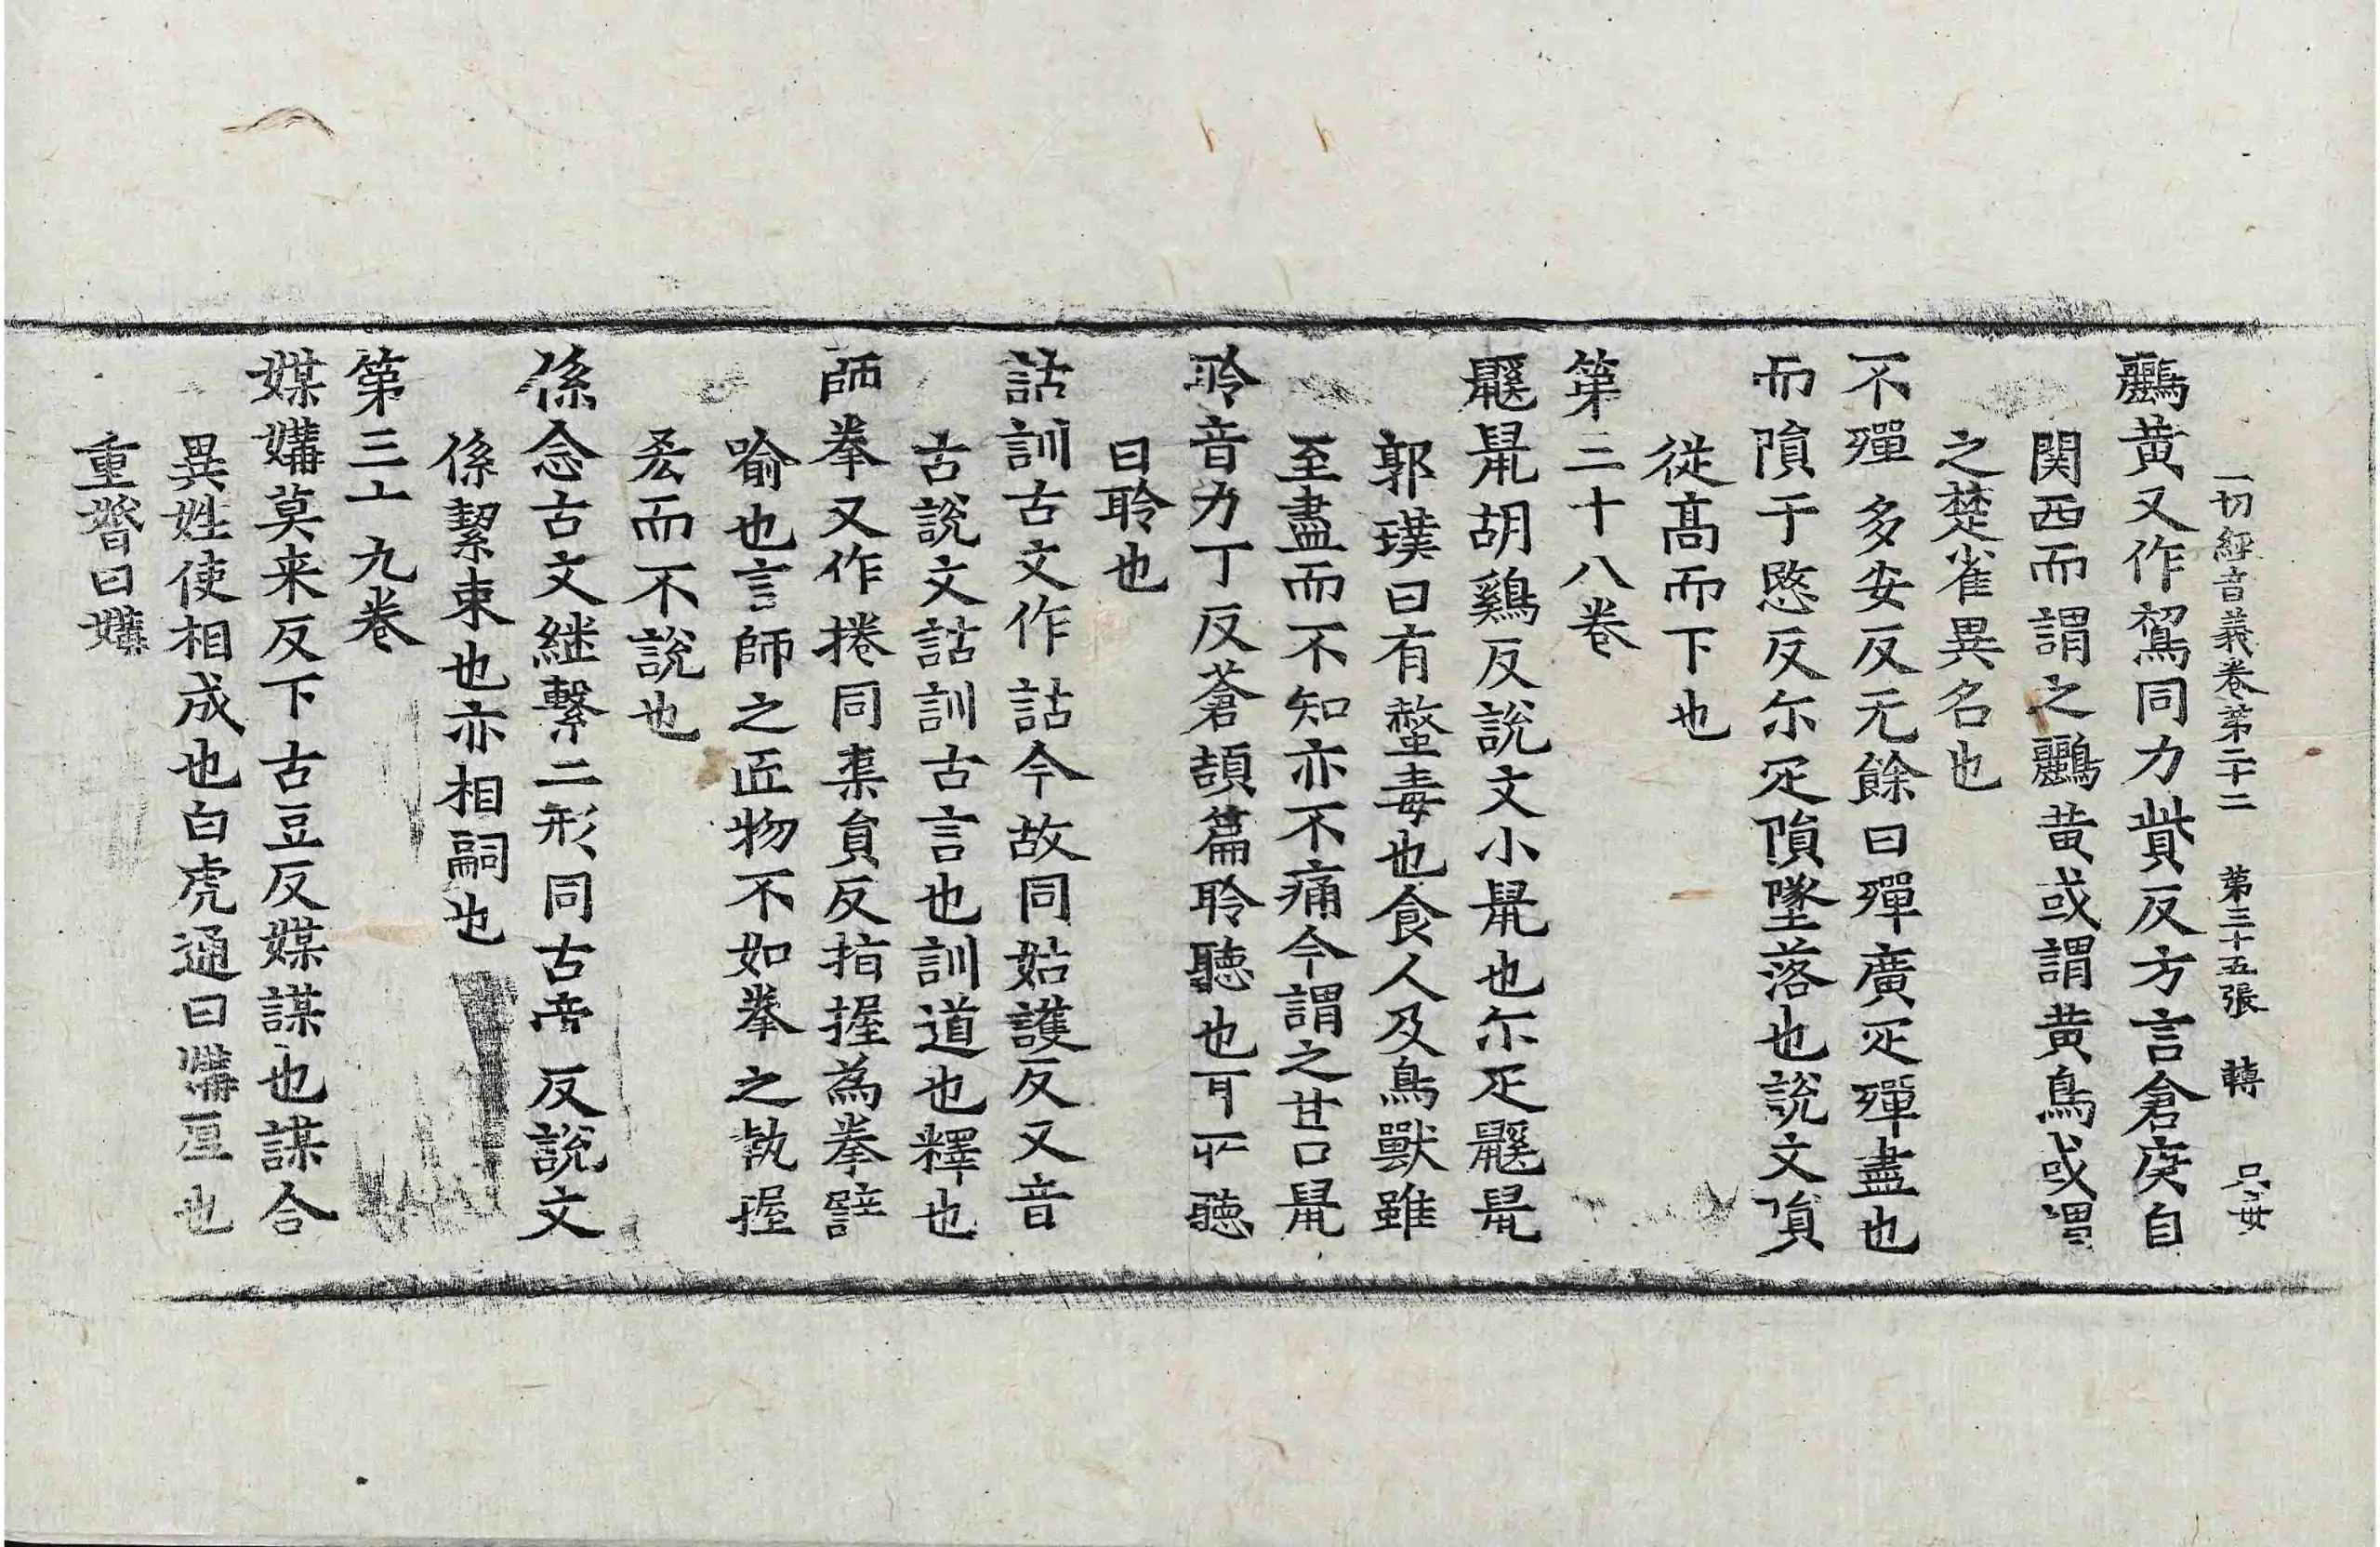 一切經音義卷第二十二　第三十五張　轉
鸝黃又作鴷同力貲反方言倉庚自
関西而謂之鸝黃或謂黃鳥或謂
之楚雀異名也
不殫多安反元餘曰殫廣疋殫盡也
而隕于愍反尓疋隕墜落也說文隕
從髙而下也
第二十八卷
鼷鼠胡鷄反說文小鼠也尓疋鼷鼠
郭璞曰有螫毒也食人及鳥獸雖
至盡而不知亦不痛今謂之甘口鼠
聆音力丁反蒼頡篇聆聽也耳所聽
曰聆也
詁訓古文作詁今故同姑護反又音
古說文詁訓古言也訓道也釋也
師拳又作捲同渠員反指握為拳譬
喻也言師之匠物不如拳之執握
𠫤而不說也
係念古文継繫二形同古帝反說文
係絜束也亦相嗣也
第三十九卷
媒媾莫来反下古豆反媒謀也謀合
異姓使相成也白虎通曰媾厚也
重㛰曰媾